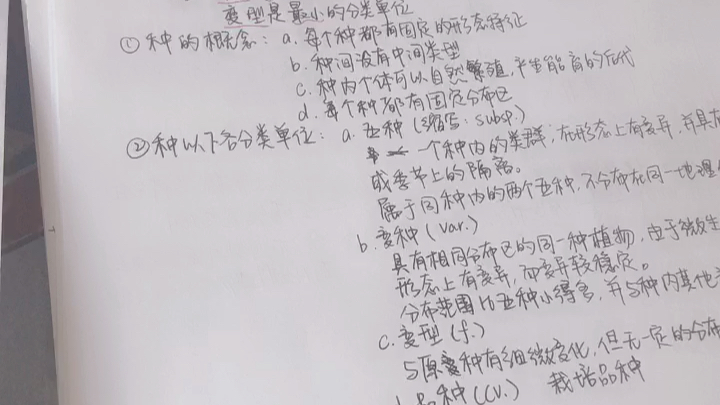 变型是最小的分类单位
①种的概念：a.每个种都有固定的形态特征
b.种间没有中间类型
c.种内个体可以自然繁殖,产生能育的后代
d.每个种都有固定分布区
②种以下各分类单位：a.亚种(缩写:subsp.)
一个种内的类群,在形态上有变异,并具有
或季节上的隔离。
属于同种内的两个亚种,不分布在同一地理
b.变种(var.)
具有相同分布区的同一种植物,由于微生
形态上有变异,而变异较稳定。
分布范围比亚种小得多,并与种内其他
c.变型(f.)
与原变种有细微变化,但无一定的分布
d.品种(cv.) 栽培品种